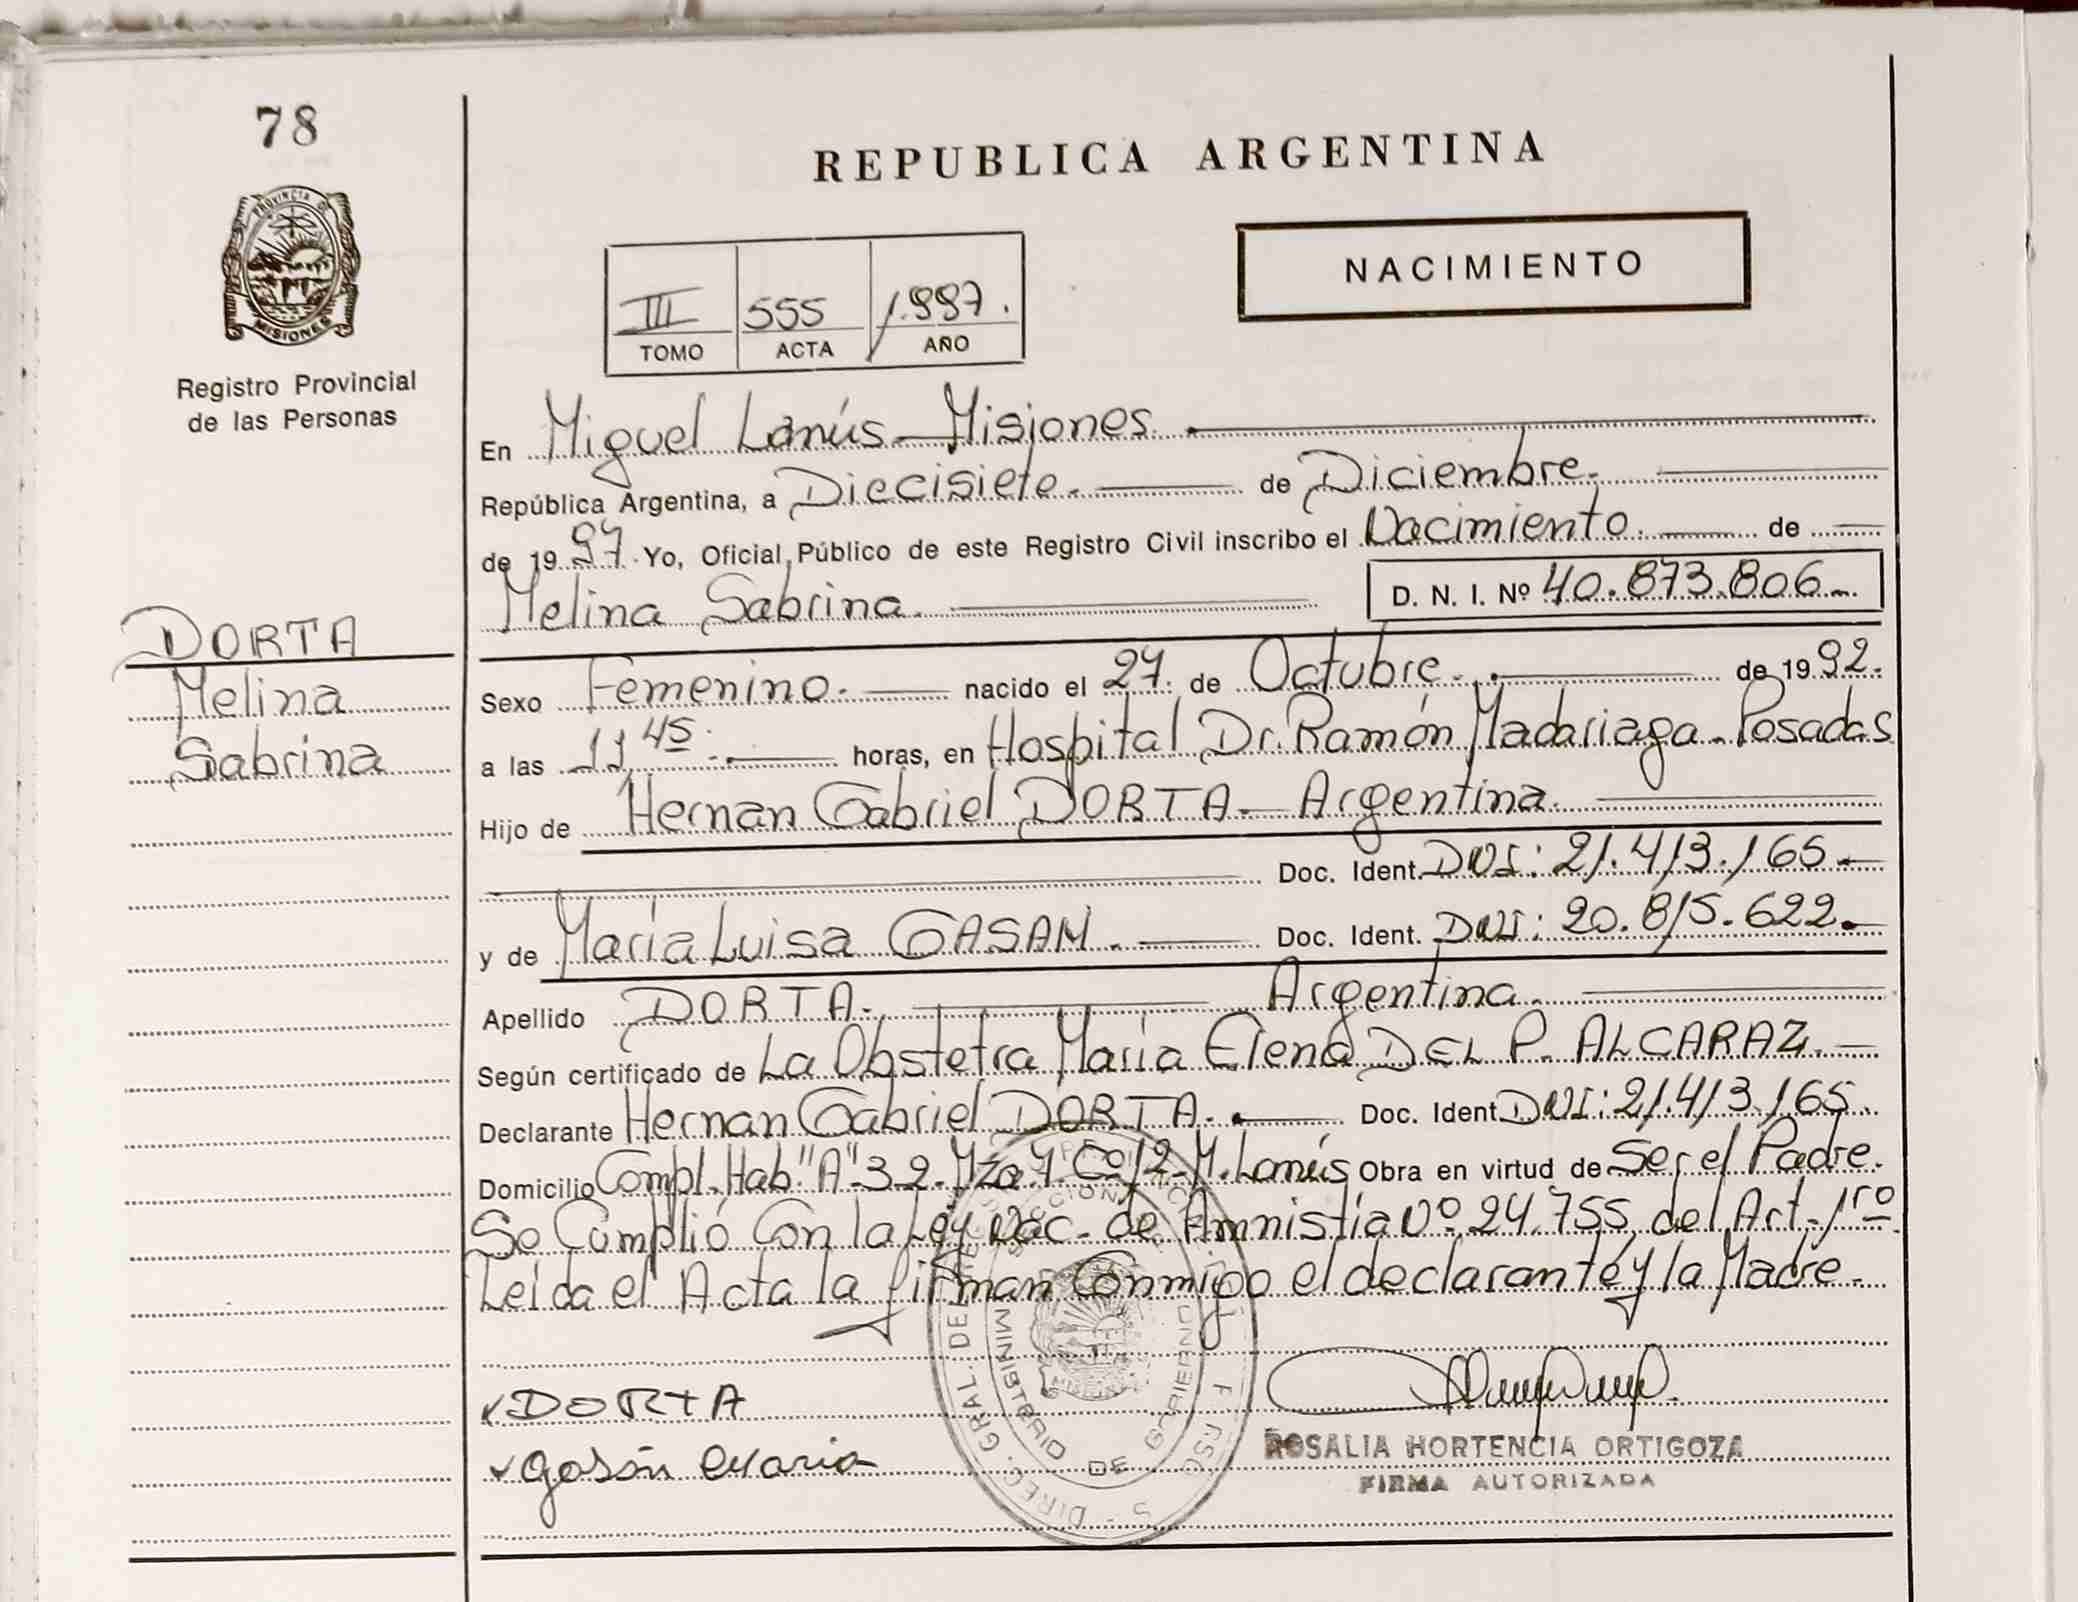 78
PROVINCIA DE
MISIONES
Registro Provincial
de las Personas
DORTA
Melina
Sabrina
REPUBLICA ARGENTINA
III 555 1.997.
TOMO ACTA AÑO
NACIMIENTO
En Miguel Lanús - Misiones.
República Argentina, a Diecisiete. de Diciembre.
de 1997. Yo, Oficial Público de este Registro Civil inscribo el Nacimiento. de
Melina Sabrina. D. N. I. Nº 40.873.806.
Sexo Femenino. nacido el 27. de Octubre. de 1992.
a las 11,45. horas, en Hospital Dr. Ramón Madariaga - Posadas
Hijo de Hernan Gabriel DORTA - Argentina.
Doc. Ident. DNI: 21.413.165.
y de María Luisa GASAN. Doc. Ident. DNI: 20.815.622.
Apellido DORTA. Argentina.
Según certificado de La Obstetra María Elena DEL P. ALCARAZ.
Declarante Hernan Gabriel DORTA. Doc. Ident. DNI: 21.413.165.
Domicilio Compl. Hab "A" - 32 - Mza 7. Cº 12 - M. Lanús Obra en virtud de Ser el Padre.
Se Cumplió Con la Ley Nac. de Amnistía Nº 24.755, del Art. 1ro
Leída el Acta la firman Conmigo el declarante y la Madre.
DORTA
Gasán Maria
DIREC. GRAL. DE
MINISTERIO DE GOBIERNO
ROSALIA HORTENCIA ORTIGOZA
FIRMA AUTORIZADA